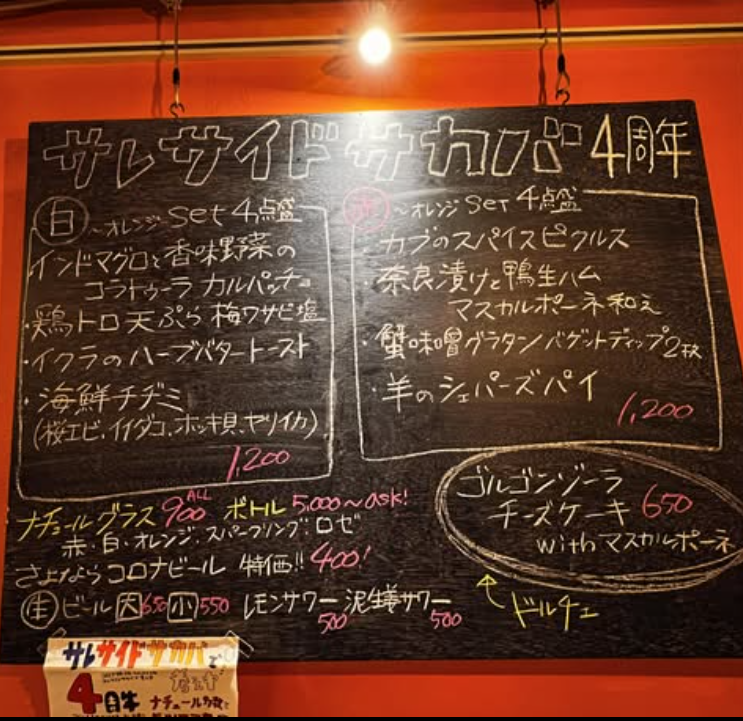 サレサイドサカバ 4周年
白 〜オレンジ set 4点盛
インドマグロと香味野菜の
コラトゥーラ カルパッチョ
・鶏トロ天ぷら 梅ワサビ塩
・イクラのハーブバタートースト
・海鮮チヂミ
(桜エビ、イイダコ、ホッキ貝、ヤリイカ)
1,200
〜オレンジ set 4点盛
・カブのスパイスピクルス
・奈良漬けと鴨生ハム
マスカルポーネ和え
・蟹味噌グラタンバゲットディップ2枚
・羊のシェパーズパイ
1,200
ナチュールグラス ALL 900 ボトル 5,000〜ask!
赤・白・オレンジ・スパークリング・ロゼ
さよなら コロナビール 特価!! 400!
生 ビール 大 650 小 550 レモンサワー 500 泥生姜サワー 500
ゴルゴンゾーラ
チーズケーキ 650
with マスカルポーネ
ドルチェ
サレサイドサカバで
4周年 ナチュール